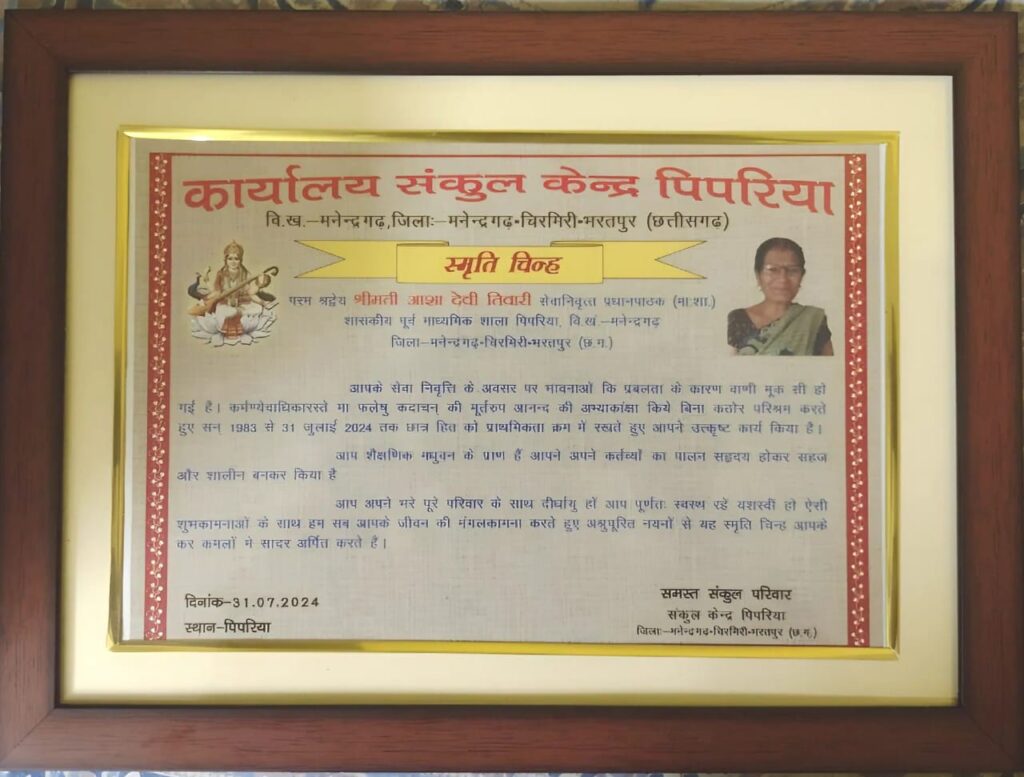 कार्यालय संकुल केन्द्र पिपरिया
वि.ख.–मनेन्द्रगढ़,जिलाः–मनेन्द्रगढ़-चिरमिरी-भरतपुर (छत्तीसगढ़)
स्मृति चिन्ह
परम श्रद्वेय श्रीमती आशा देवी तिवारी सेवानिवृत्त प्रधानपाठक (मा.शा.)
शासकीय पूर्व माध्यमिक शाला पिपरिया, वि.खं.–मनेन्द्रगढ़
जिला–मनेन्द्रगढ़-चिरमिरी-भरतपुर (छ.ग.)
आपके सेवा निवृत्ति के अवसर पर भावनाओं कि प्रबलता के कारण वाणी मूक सी हो
गई है। कर्मण्येवाधिकारस्ते मा फलेषु कदाचन् की मूर्तरुप आनन्द की अभ्याकांक्षा किये बिना कठोर परिश्रम करते
हुए सन् 1983 से 31 जुलाई 2024 तक छात्र हित को प्राथमिकता क्रम में रखते हुए आपने उत्कृष्ट कार्य किया है।
आप शैक्षणिक मधुवन के प्राण हैं आपने अपने कर्तव्यों का पालन सह्रदय होकर सहज
और शालीन बनकर किया है
आप अपने भरे पूरे परिवार के साथ दीर्घायु हों आप पूर्णतः स्वस्थ रहें यशस्वी हो ऐसी
शुभकामनाओं के साथ हम सब आपके जीवन की मंगलकामना करते हुए अश्रुपूरित नयनों से यह स्मृति चिन्ह आपके
कर कमलों मे सादर अर्पित करते है।
दिनांक-31.07.2024
स्थान-पिपरिया
समस्त संकुल परिवार
संकुल केन्द्र पिपरिया
जिलाः-मनेन्द्रगढ़-चिरमिरी-भरतपुर (छ.ग.)